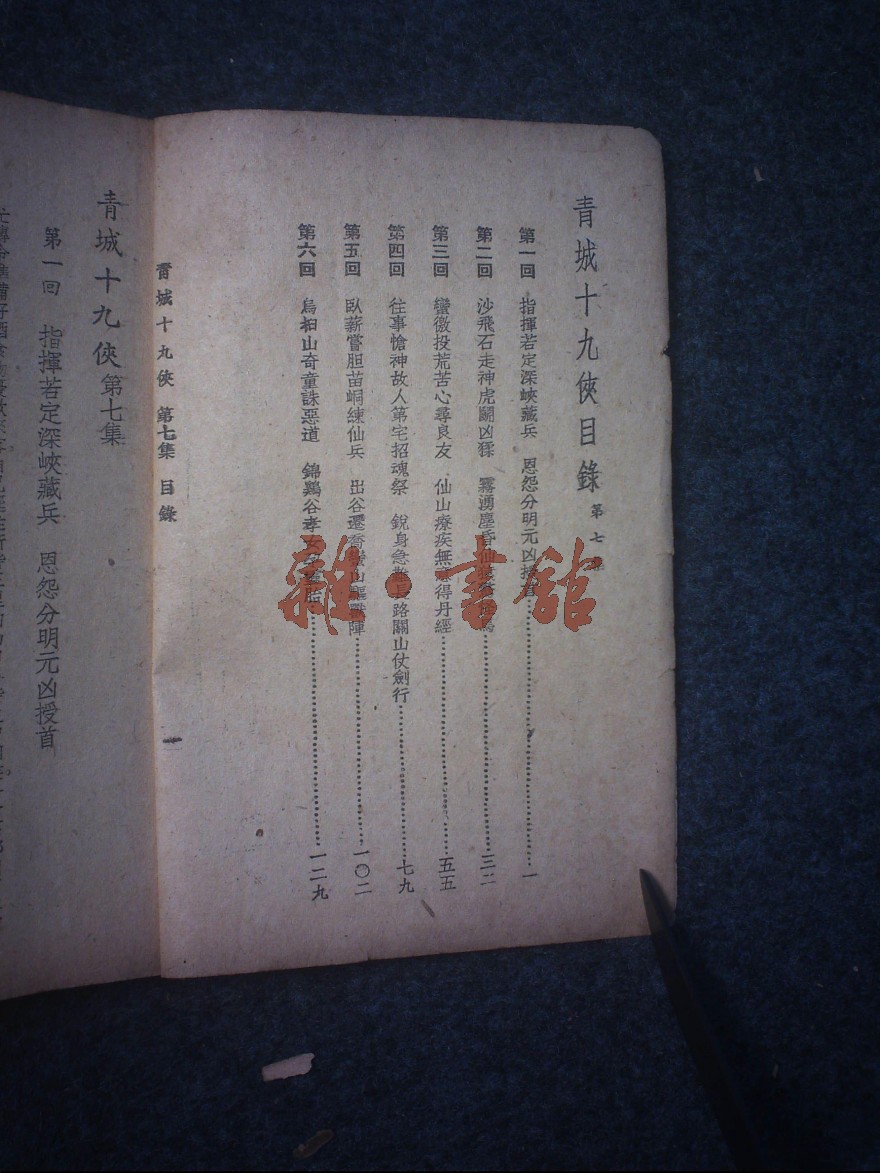 青城十九俠目錄 第七集
第一回 指揮若定深峽藏兵 恩怨分明元凶授首 一
第二回 沙飛石走神虎鬭凶猱 霧湧塵昏仙 三二
第三回 蠻徼投荒苦心尋良友 仙山療疾無 得丹經 五五
第四回 往事愴神故人第宅招魂祭 銳身急難長路關山仗劍行 七九
第五回 臥薪嘗胆苗峒練仙兵 出谷遷喬 山驅獸陣 一〇二
第六回 烏桕山奇童誅惡道 錦鷄谷孝女 一二九
青城十九俠 第七集 目錄
雜·書館
青城十九俠第七集
第一回 指揮若定深峽藏兵 恩怨分明元凶授首